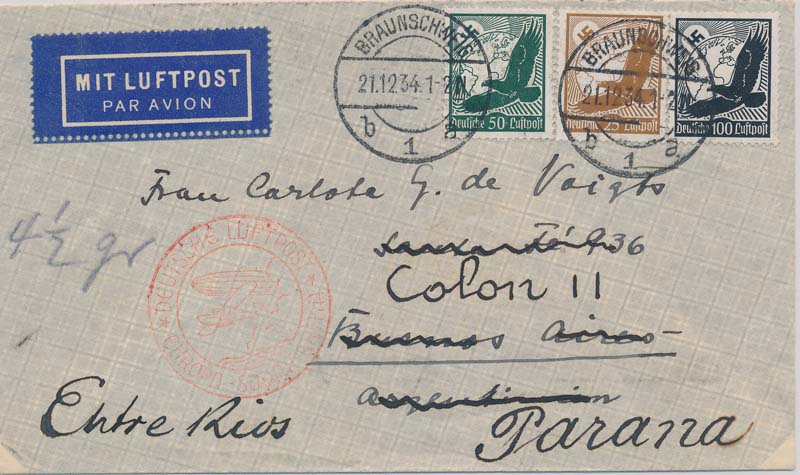 MIT LUFTPOST
PAR AVION
BRAUNSCHWEIG
21.12.34.1-2
b 1 a
Deutsche 50 Luftpost
BRAUNSCHWEIG
21.12.34.
b 1 a
Deutsche 25 Luftpost
Deutsche 100 Luftpost
Frau Carlota G. de Voigts
36
Colon 11
Buenos Aires
Argentinien
4½ gr
DEUTSCHE LUFTPOST
EUROPA-SÜDAMERIKA
Entre Rios
Parana